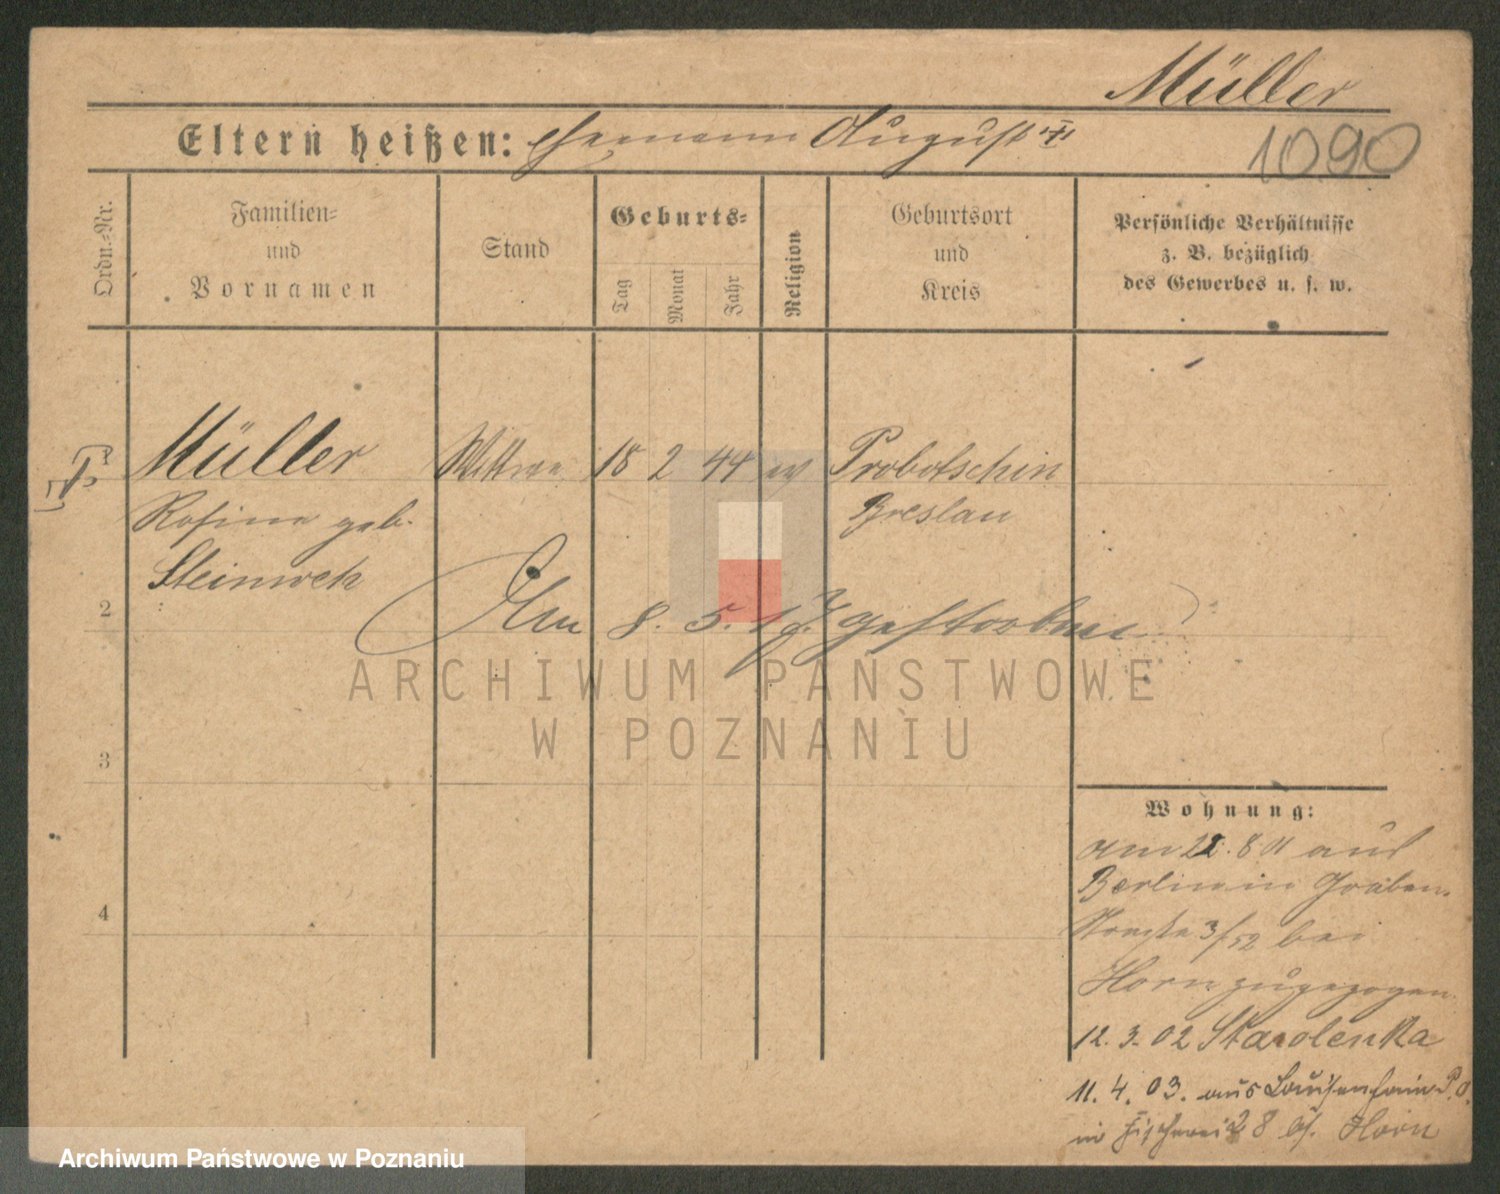 Müller
Eltern heißen: Hermann August
1090
Ordn.-Nr.
Familien-
und
Vornamen
Stand
Geburts-
Tag
Monat
Jahr
Religion
Geburtsort
und
Kreis
Persönliche Verhältnisse
z. B. bezüglich
des Gewerbes u. s. w.
1 Müller Wittwe 18 2 44 ev Probotschin
Rosina geb. Breslau
Steinweh
2 Am 8. 5. 17 gestorben
ARCHIWUM PAŃSTWOWE
W POZNANIU
3
Wohnung:
am 22. 8 01 aus
Berlin in Graben-
4
Straße 3/52 bei
Horn zugezogen
12. 3. 02 Starolenka
11. 4. 03. aus Louisenhain P. O.
in Fischerei 28 bei Horn
Archiwum Państwowe w Poznaniu